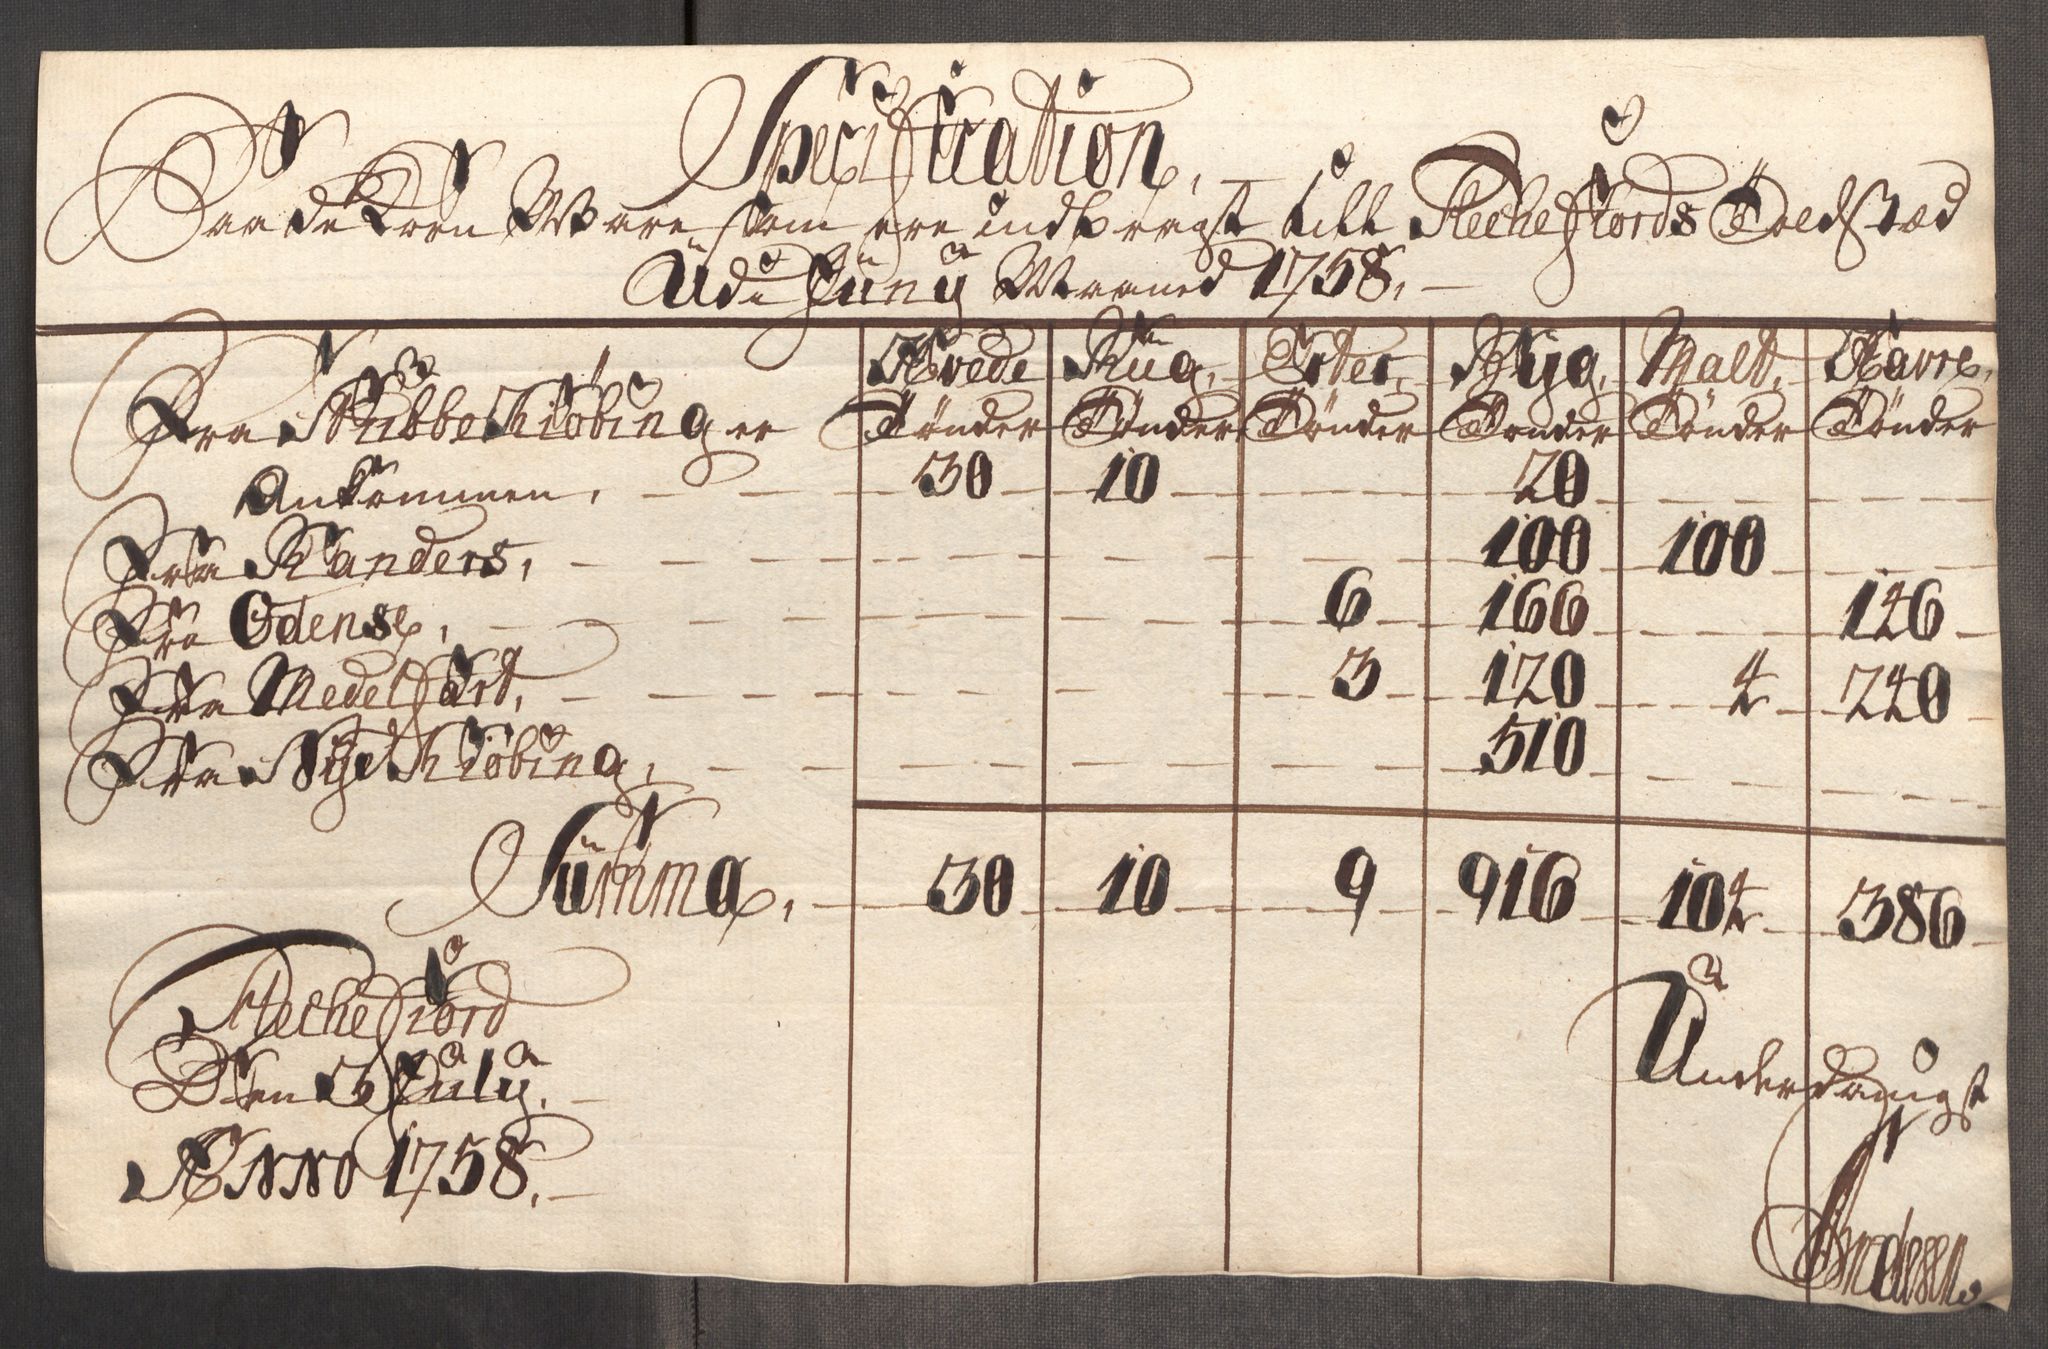 Specification,
Paa de Korn Ware som ere indbragt till Flechefiords Toldsted
Udi Juny Maaned 1758.
Hvede Rug, Erter, Byg, Malt, Havre,
Fra Stubbekiøbing er Tønder Tønder Tønder Tønder Tønder Tønder
Ankommen, 30 10 20
Fra Randers, 100 100
Fra Odense, 6 166 146
Fra Medelfart, 3 120 4 240
Fra Nyekiøbing, 510
Summa, 30 10 9 916 104 386
Flechefiord
Den 3 July
Anno 1758.
Underdanigst